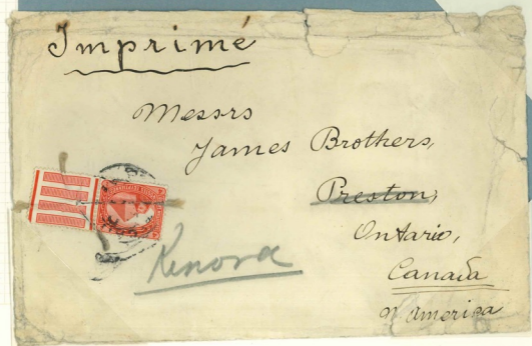 Imprimé
Messrs
James Brothers,
Preston,
Ontario,
Canada
N America
Kenora